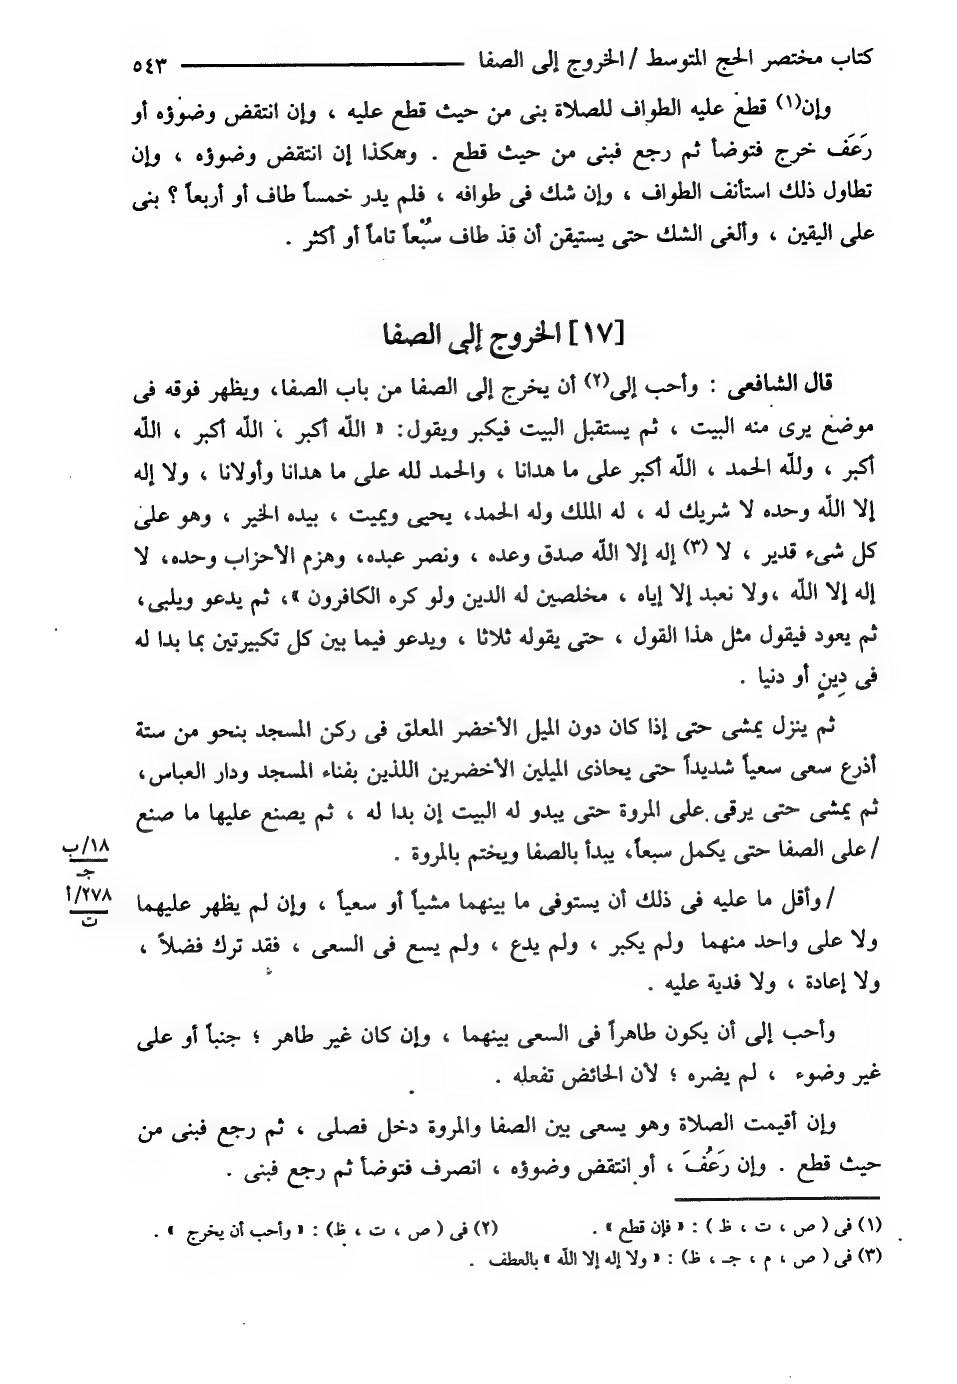 كتاب مختصر الحج المتوسط / الخروج إلى الصفا ٥٤٣
وإن(١) قطع عليه الطواف للصلاة بنى من حيث قطع عليه ، وإن انتقض وضوؤه أو
رَعَف خرج فتوضأ ثم رجع فبنى من حيث قطع . وهكذا إن انتقض وضوؤه ، وإن
تطاول ذلك استأنف الطواف ، وإن شك فى طوافه ، فلم يدر خمساً طاف أو أربعاً ؟ بنى
على اليقين ، وألغى الشك حتى يستيقن أن قد طاف سُبْعاً تاماً أو أكثر .
[١٧] الخروج إلى الصفا
قال الشافعى : وأحب إلى(٢) أن يخرج إلى الصفا من باب الصفا، ويظهر فوقه فى
موضع يرى منه البيت ، ثم يستقبل البيت فيكبر ويقول: « اللّه أكبر ، اللّه أكبر ، اللّه
أكبر ، وللّه الحمد ، اللّه أكبر على ما هدانا ، والحمد لله على ما هدانا وأولانا ، ولا إله
إلا اللّه وحده لا شريك له ، له الملك وله الحمد، يحيى ويميت ، بيده الخير ، وهو على
كل شىء قدير ، لا (٣) إله إلا اللّه صدق وعده ، ونصر عبده، وهزم الأحزاب وحده، لا
إله إلا اللّه ،ولا نعبد إلا إياه ، مخلصين له الدين ولو كره الكافرون »، ثم يدعو ويلبى،
ثم يعود فيقول مثل هذا القول ، حتى يقوله ثلاثا ، ويدعو فيما بين كل تكبيرتين بما بدا له
فى دِينٍ أو دنيا .
ثم ينزل يمشى حتى إذا كان دون الميل الأخضر المعلق فى ركن المسجد بنحو من ستة
أذرع سعى سعياً شديداً حتى يحاذى الميلين الأخضرين اللذين بفناء المسجد ودار العباس،
ثم يمشى حتى يرقى على المروة حتى يبدو له البيت إن بدا له ، ثم يصنع عليها ما صنع
/ على الصفا حتى يكمل سبعاً، يبدأ بالصفا ويختم بالمروة .
١٨/ب
جـ
/ وأقل ما عليه فى ذلك أن يستوفى ما بينهما مشياً أو سعياً ، وإن لم يظهر عليهما
٢٧٨/أ
ت
ولا على واحد منهما ولم يكبر ، ولم يدع ، ولم يسع فى السعى ، فقد ترك فضلاً ،
ولا إعادة ، ولا فدية عليه .
وأحب إلى أن يكون طاهراً فى السعى بينهما ، وإن كان غير طاهر ؛ جنباً أو على
غير وضوء ، لم يضره ؛ لأن الحائض تفعله .
وإن أقيمت الصلاة وهو يسعى بين الصفا والمروة دخل فصلى ، ثم رجع فبنى من
حيث قطع . وإن رَعُفَ ، أو انتقض وضوؤه ، انصرف فتوضأ ثم رجع فبنى .
(١) فى ( ص ، ت ، ظ ) : « فإن قطع » . (٢) فى ( ص ، ت ، ظ) : « وأحب أن يخرج » .
(٣) فى ( ص ، م ، جـ ، ظ) : « ولا إله إلا اللّه » بالعطف .